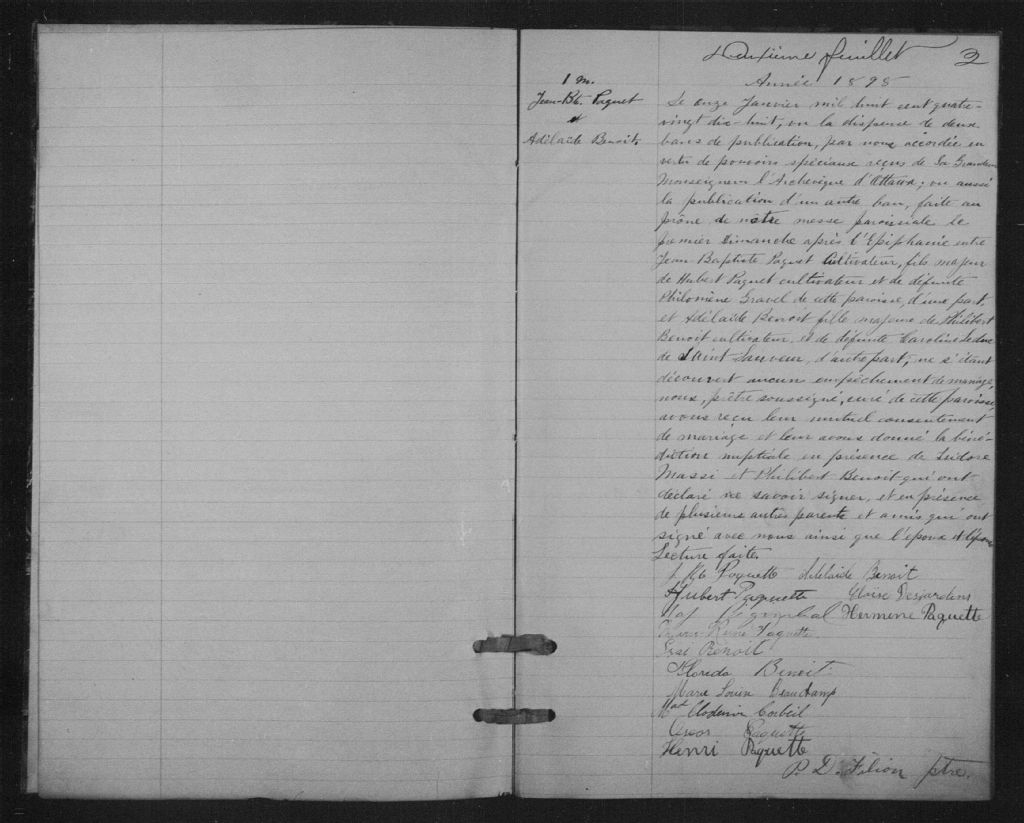 Deuxième feuillet 2
Année 1898
1 m.
Jean-Bte. Paquet
et
Adélaïde Benoit.
Le onze Janvier mil huit cent quatre-
vingt dix-huit, vu la dispense de deux
bans de publication, par nous accordée en
vertu de pouvoirs spéciaux reçus de Sa Grandeur
Monseigneur l'Archevêque d'Ottawa; vu aussi
la publication d'un autre ban, faite au
prône de notre messe paroissiale le
premier Dimanche après l'Epiphanie entre
Jean Baptiste Paquet Cultivateur, fils majeur
de Hubert Paquet cultivateur et de défunte
Philomène Gravel de cette paroisse, d'une part,
et Adélaïde Benoit fille majeure de Philibert
Benoit cultivateur, et de défunte Caroline Leduc
de Saint Sauveur, d'autre part; ne s'étant
découvert aucun empêchement de mariage,
nous, prêtre soussigné, curé de cette paroisse,
avons reçu leur mutuel consentement
de mariage et leur avons donné la béné-
diction nuptiale en présence de Isidore
Massi et Philibert Benoit qui ont
déclaré ne savoir signer, et en présence
de plusieurs autres parents et amis qui ont
signé avec nous ainsi que l'époux et l'épouse
Lecture faite.
J. Bte Paquette Adelaide Benoit
Hubert Paquette Desjardins
Hermene Paquette
Paquette
Benoit
Florida Benoit
Marie Louise Beauchamp
Corbeil
Paquette
Henri Paquette
P. D. Filion ptre.